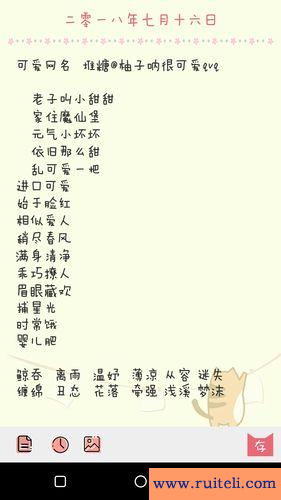 二零一八年七月十六日
可爱网名 堆糖@柚子呐很可爱qvq
老子叫小甜甜
家住魔仙堡
元气小坏坏
依旧那么甜
乱可爱一把
进口可爱
始于脸红
相似爱人
稍尽春风
满身清净
乖巧撩人
眉眼藏欢
捕星光
时常饿
婴儿肥
鲸吞 离雨 温妤 薄凉 从容 迷失
缠绵 丑态 花落 牵强 浅溪 梦沫
存
www.ruiteli.com